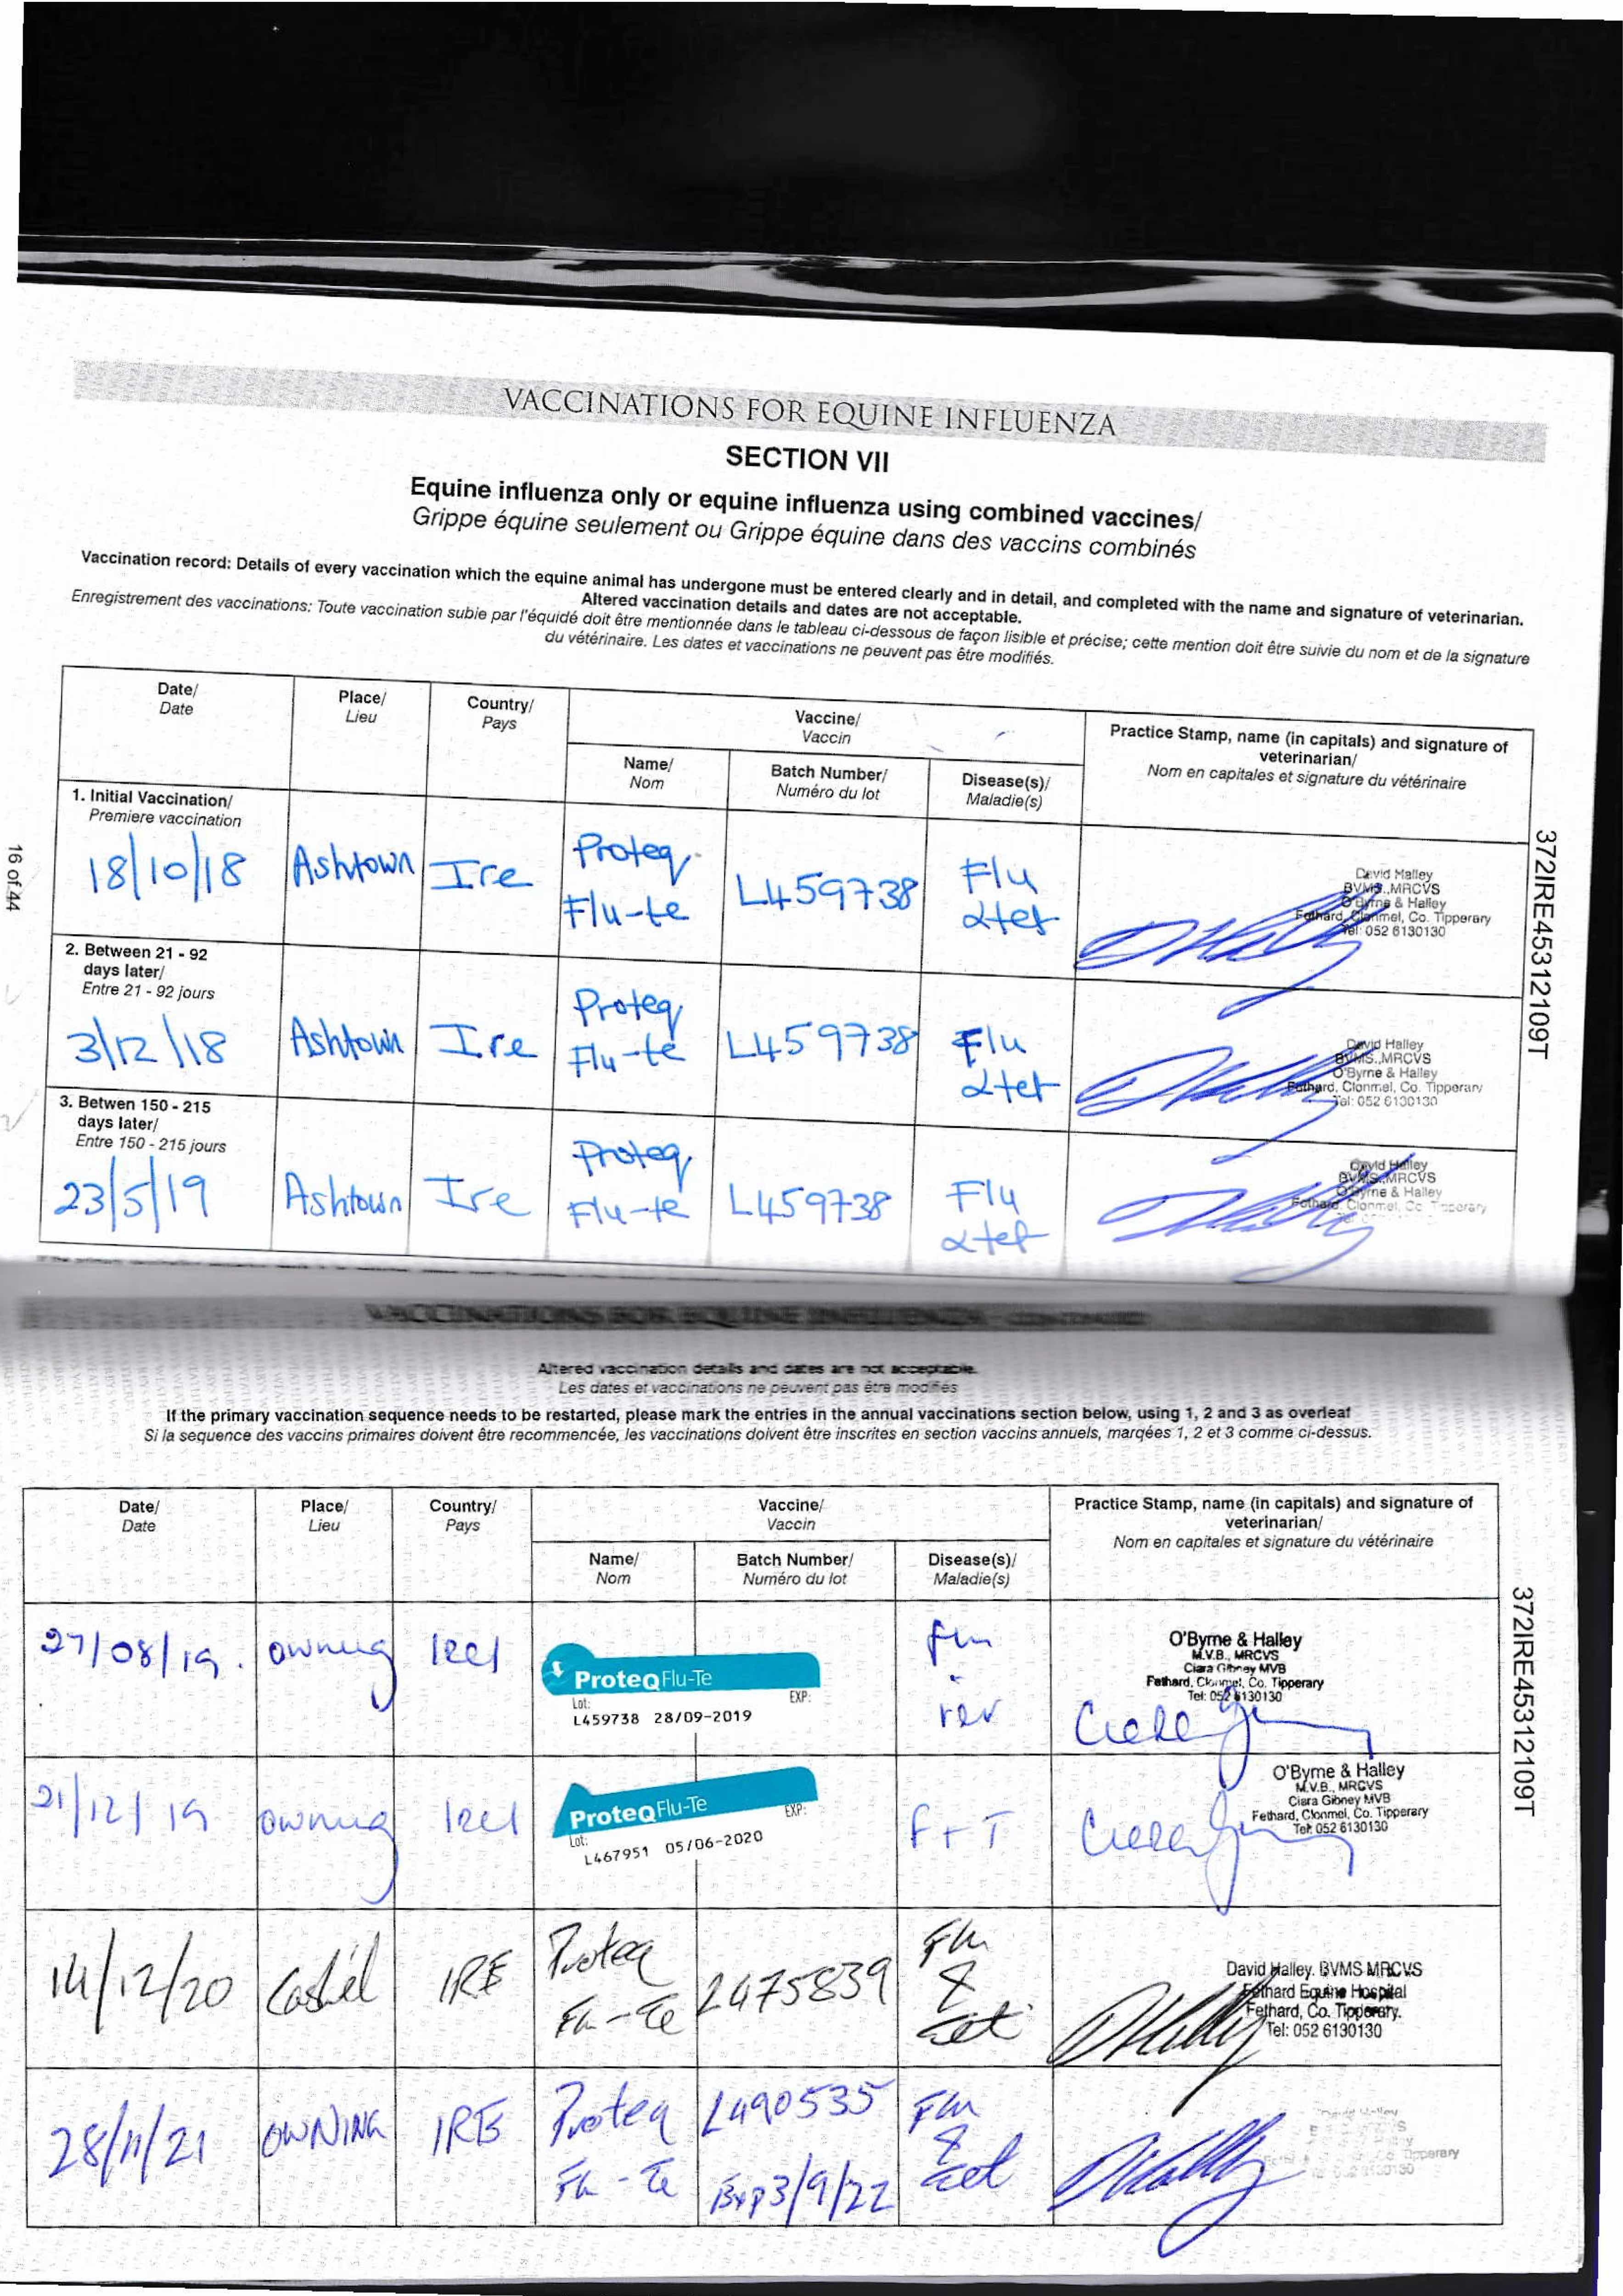 VACCINATIONS FOR EQUINE INFLUENZA
SECTION VII
Equine influenza only or equine influenza using combined vaccines/
Grippe équine seulement ou Grippe équine dans des vaccins combinés
Vaccination record: Details of every vaccination which the equine animal has undergone must be entered clearly and in detail, and completed with the name and signature of veterinarian.
Altered vaccination details and dates are not acceptable.
Enregistrement des vaccinations: Toute vaccination subie par l'équidé doit être mentionnée dans le tableau ci-dessous de façon lisible et précise; cette mention doit être suivie du nom et de la signature
du vétérinaire. Les dates et vaccinations ne peuvent pas être modifiés.
Date/
Date
Place/
Lieu
Country/
Pays
Vaccine/
Vaccin
Name/
Nom
Batch Number/
Numéro du lot
Disease(s)/
Maladie(s)
Practice Stamp, name (in capitals) and signature of
veterinarian/
Nom en capitales et signature du vétérinaire
1. Initial Vaccination/
Premiere vaccination
18/10/18 Ashtown Ire Proteq
Flu-te L459738 Flu
&tet
David Halley
BVMS.,MRCVS
O'Byrne & Halley
Fethard, Clonmel, Co. Tipperary
Tel: 052 6130130
2. Between 21 - 92
days later/
Entre 21 - 92 jours
3/12/18 Ashtown Ire Proteq
Flu-te L459738 Flu
&tet
David Halley
BVMS.,MRCVS
O'Byrne & Halley
Fethard, Clonmel, Co. Tipperary
Tel: 052 6130130
3. Betwen 150 - 215
days later/
Entre 150 - 215 jours
23/5/19 Ashtown Ire Proteq
Flu-te L459738 Flu
&tet
David Halley
BVMS.,MRCVS
O'Byrne & Halley
Fethard, Clonmel, Co. Tipperary
16 of 44
372IRE45312109T
VACCINATIONS FOR EQUINE INFLUENZA - CONTINUED
Altered vaccination details and dates are not acceptable.
Les dates et vaccinations ne peuvent pas être modifiés
If the primary vaccination sequence needs to be restarted, please mark the entries in the annual vaccinations section below, using 1, 2 and 3 as overleaf
Si la sequence des vaccins primaires doivent être recommencée, les vaccinations doivent être inscrites en section vaccins annuels, marqées 1, 2 et 3 comme ci-dessus.
Date/
Date
Place/
Lieu
Country/
Pays
Vaccine/
Vaccin
Name/
Nom
Batch Number/
Numéro du lot
Disease(s)/
Maladie(s)
Practice Stamp, name (in capitals) and signature of
veterinarian/
Nom en capitales et signature du vétérinaire
27/08/19. Owning Irel
ProteqFlu-Te
Lot: EXP:
L459738 28/09-2019
O'Byrne & Halley
M.V.B., MRCVS
Ciara Gibney MVB
Fethard, Clonmel, Co. Tipperary
Tel: 052 6130130
21/12/19 Owning Irel
ProteqFlu-Te
Lot: EXP:
L467951 05/06-2020
F+T
O'Byrne & Halley
M.V.B., MRCVS
Ciara Gibney MVB
Fethard, Clonmel, Co. Tipperary
Tel: 052 6130130
14/12/20 Cashel IRE Proteq
Flu-Te L475839 Flu
& tet
David Halley. BVMS MRCVS
Fethard Equine Hospital
Fethard, Co. Tipperary.
Tel: 052 6130130
28/11/21 OWNING IRE Proteq
Flu-Te L490535
Exp 3/9/22 Flu
& tet
Tipperary
372IRE45312109T